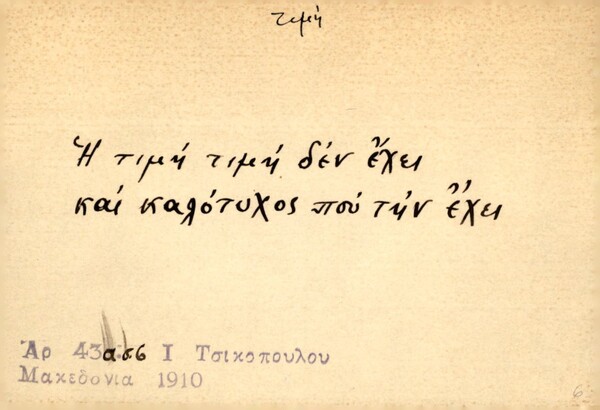 τιμή
Ἡ τιμή τιμή δέν ἔχει
καί καλότυχος πού τήν ἔχει
Ἀρ 43 Ι Τσικοπουλου
Μακεδονια 1910
6